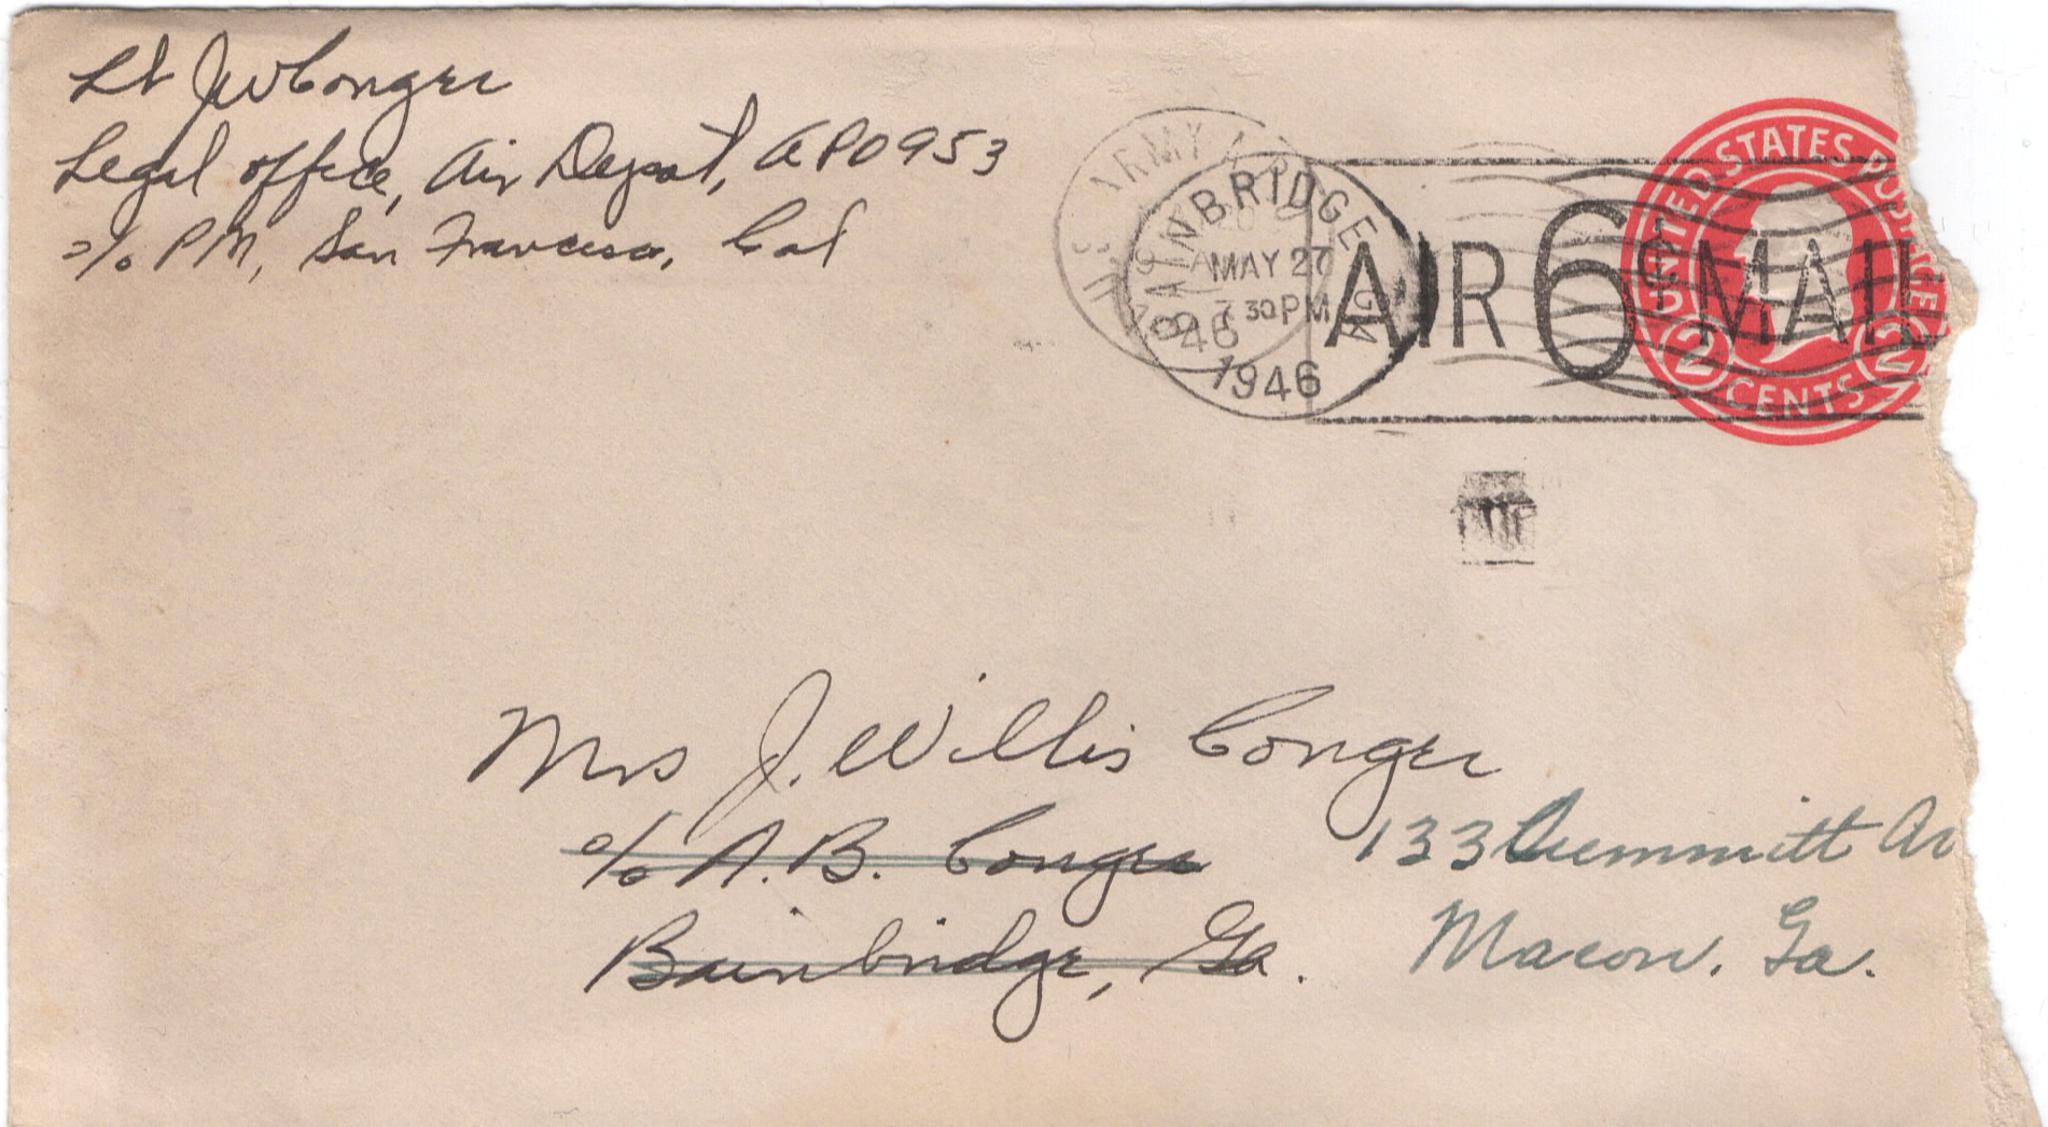 Lt JWConger
Legal office, Air Depot, APO953
c/o PM, San Francisco, Cal
U.S. ARMY
BAINBRIDGE GA
MAY 27
7 30 PM
1946
46
AIR 6¢ MAIL
UNITED STATES POSTAGE
2 CENTS 2
Mrs J. Willis Conger
c/o A.B. Conger
Bainbridge, Ga.
133 Av
Macon, Ga.